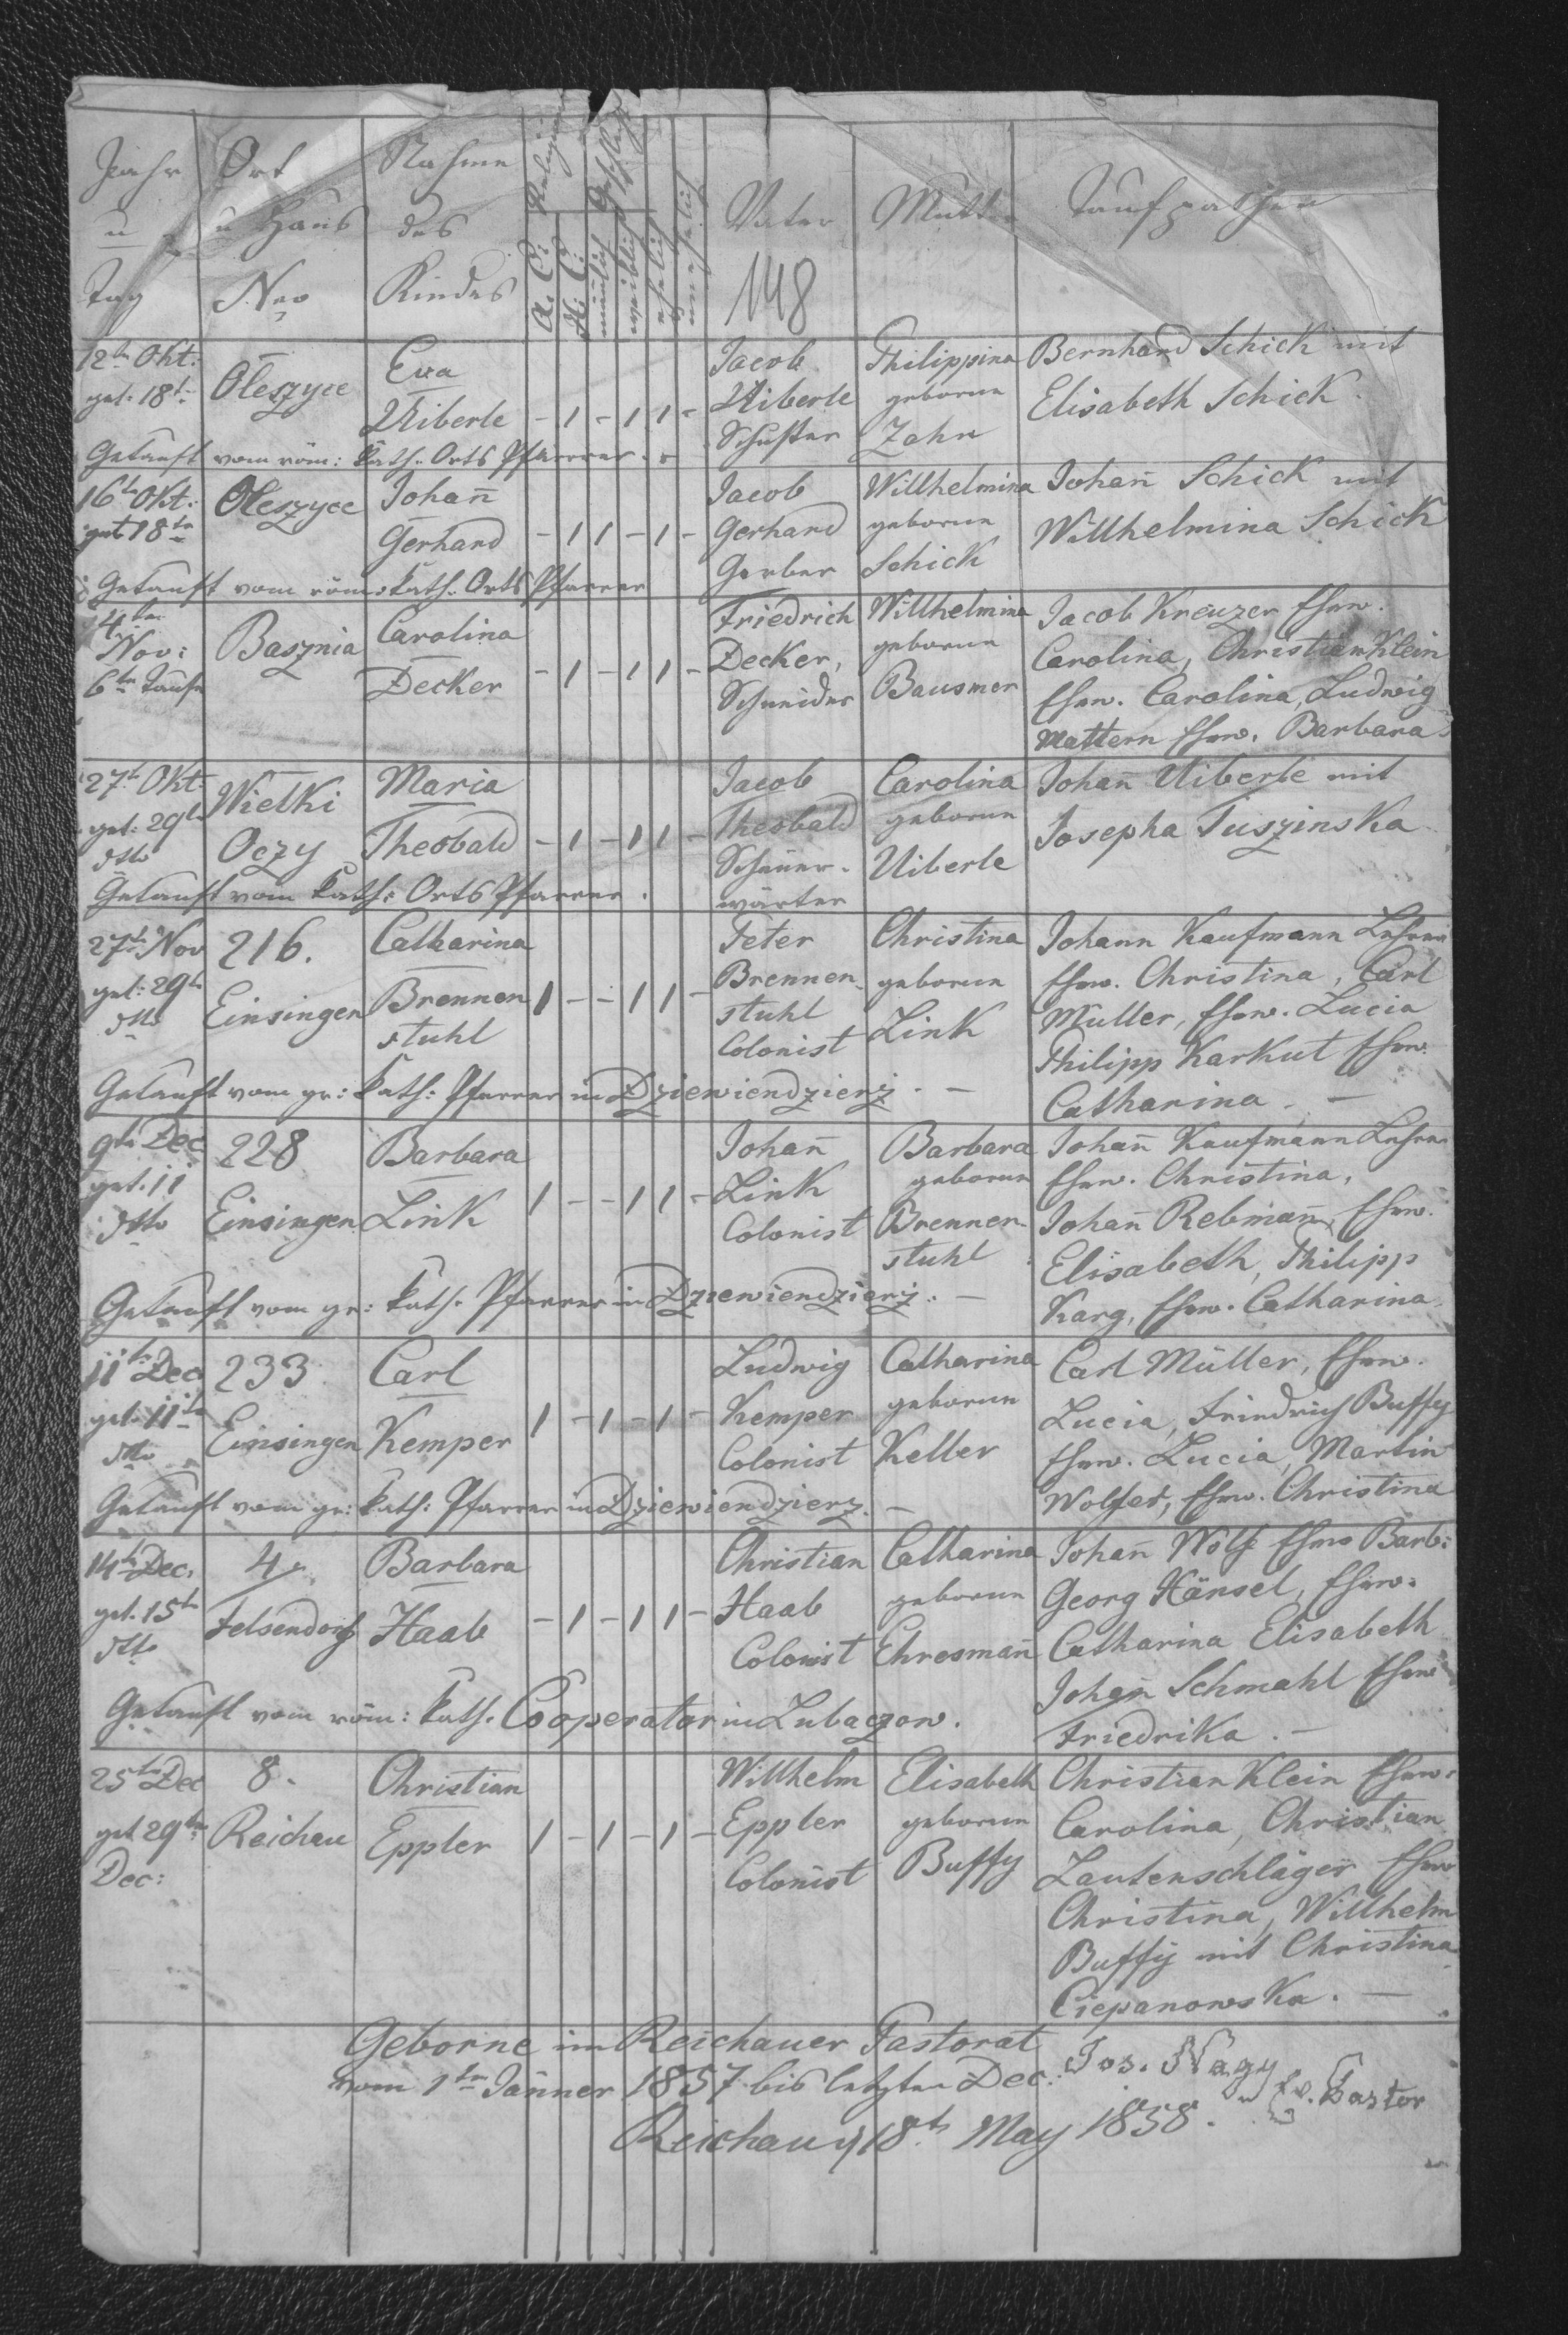 Jahr Ort Nahme Religion Geschlecht
u u Haus des Vater Mutter Taufpathen
Tag Nro Kindes A. C. H. C. männlich weiblich ehelich unehelich 148
12tn Okt: Oleszyce Eva Jacob Philippina Bernhard Schick mit
get. 18tn Uiberle - 1 - 1 1 - Uiberle geborne Elisabeth Schick.
Schuster Zahn
Getauft vom röm: kath. Orts Pfarrer.
16tn Okt: Oleszyce Johañ Jacob Willhelmina Johañ Schick mit
get 18tn Gerhard - 1 1 - 1 - Gerhard geborne Willhelmina Schick
Gerber Schick
Getauft vom röm: kath. Orts Pfarrer
4tn Nov: Basznia Carolina Friedrich Willhelmina Jacob Kreuzer Ehew.
6tn Taufe Decker - 1 - 1 1 - Decker, geborne Carolina, Christian Klein
Schneider Bausmer Ehew. Carolina, Ludwig
Mattern Ehew. Barbara
27tn Okt. Wielki Maria Jacob Carolina Johañ Uiberle mit
get: 29tn Oczy Theobald - 1 - 1 1 - Theobald geborne Josepha Tuszinska
dtto Uiberle
wärter
Getauft vom kath: Orts Pfarrer.
27tn Nov 216. Catharina Peter Christina Johann Kaufmann Lehrer
get: 29tn Einsingen Brennen 1 - - 1 1 - Brennen geborne Ehew. Christina, Carl
dtto stuhl stuhl Link Müller, Ehew. Lucia
Colonist Philipp Karkut Ehew.
Getauft vom gr: kath: Pfarrer in Dziewiendzierz. - Catharina. -
9tn Dec 228 Barbara Johañ Barbara Johañ Kaufmann Lehrer
get. 11 Einsingen Link 1 - - 1 1 - Link geborne Ehew. Christina,
dtto Colonist Brennen Johañ Rebmañ, Ehew.
stuhl Elisabeth, Philipp
Getauft vom gr: kath. Pfarrer in Dziewiendzierz. - Karg, Ehew. Catharina.
11tn Dec 233 Carl Ludwig Catharina Carl Müller, Ehew.
get. 11tn Einsingen Kemper 1 - 1 - 1 - Kemper geborne Lucia, Friedrich Buffy
dtto Colonist Keller Ehew. Lucia, Martin
Getauft vom gr: kath: Pfarrer in Dziewiendzierz. - Wolfer, Ehew. Christina
14tn Dec. 4. Barbara Christian Catharina Johañ Wolf Ehew Barb:
get. 15tn Felsendorf Haab - 1 - 1 1 - Haab geborne Georg Hänsel, Ehew.
dtto Colonist Ehresmañ Catharina Elisabeth
Johañ Schmahl Ehew
Getauft vom röm: kath. Cooperator in Lubaczow. Friedrika. -
25tn Dec 8. Christian Willhelm Elisabeth Christian Klein Ehew.
get 29tn Reichau Eppler 1 - 1 - 1 - Eppler geborne Carolina, Christian
Dec: Colonist Buffy Lautenschläger Ehew
Christina, Willhelm
Buffy mit Christina
Ciepanowska. -
Geborne im Reichauer Pastorat
vom 1tn Jänner 1857 bis letzten Dec: Jos. Nagy Ev. Pastor
Reichau 18tn May 1858.